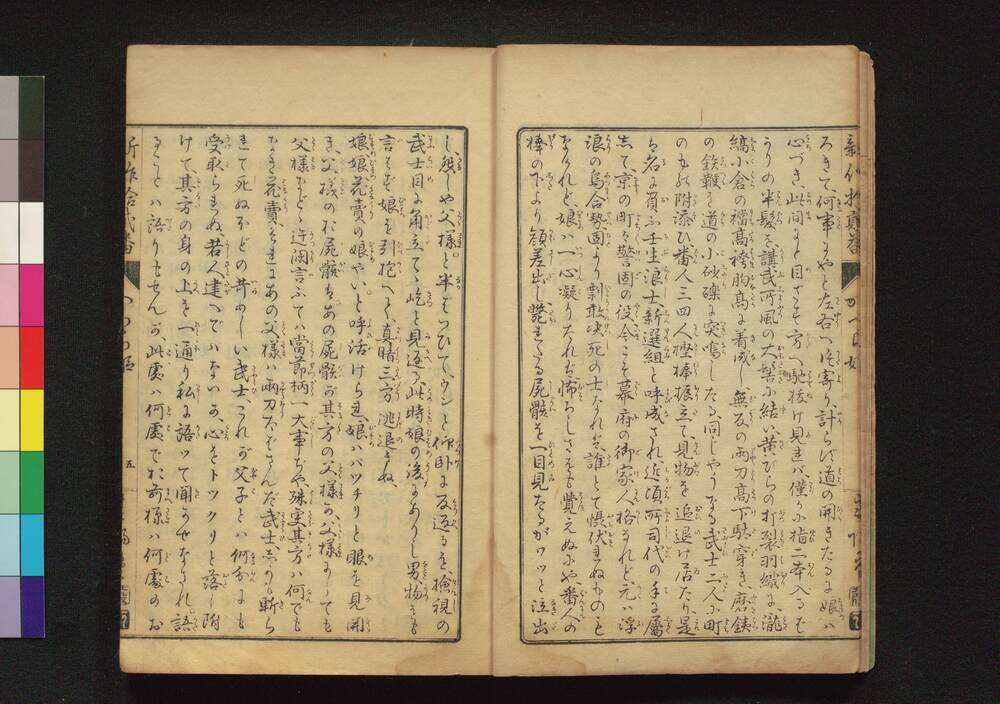 ろきて、何事にやと左右へ片寄り、計らず道の開きたるに娘は
心づき、此間にと目ざす方へ馳抜け見れば、僅か小指二本入るを
うりの半髪を講武所風の大髻に結い、黄びらの打裂羽織に瀧
縞小倉の襠高袴胸高に着成し、無反の両刀高下駄穿き、磨鉄
の鉄鞭を道の小砂礫に突鳴したる、同じやうなる武士二人に町
のもの附添ひ番人三四人樫棒振立て、見物を追退け居たり、是
ぞ名に負ふ壬生浪士新選組と呼成され、近頃所司代の手に属
して、京の町々警固の役、今こそ幕府の御家人格なれど、元ハ浮
浪の烏合勢、固より剽敢決死の士なれば、誰とて慴伏せぬものも
なけれど、娘ハ一心凝りたれば怖ろしさをも覚えぬにや、番人の
棒の下より顔差出し、斃れたる屍骸を一目見たるがワッと泣出
し、怨しや父様。と半をいひて、ウンと仰卧に反返るを、検視の
武士目に角立て、屹と見返る、此時娘の後にありし男物をも
言はず娘を引抱へて、真暗三方逃退きぬ、
娘娘花売の娘やい。と呼活けられ、娘ハバッチリと眼を見開
き、父様のお屍骸、あの屍骸が其方の父様か、父様にしても
父様などゝ迂闊言ふてハ当節柄、大事ぢや殊更其方ハ何でも
なき花賣、それにあの父様ハ両刀たばさんだ武士、しかも斬ら
れて死ぬほどの苛めしい武士、これが父子とハ何分にも
受取られぬ、若人違へでハないか、心をトックリと落し附
けて其方の身の上を一通り私に語ッて聞かせなされ、語
きとハ語りもせんが、此處ハ何處でお前様ハ何處のお